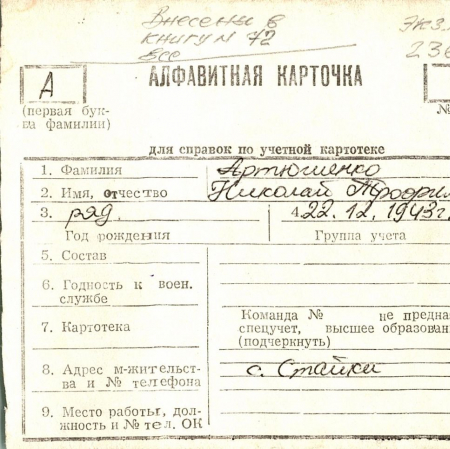 Внесены в
книгу № 72
все
экз.
236
А
АЛФАВИТНАЯ КАРТОЧКА
№
(первая бук-
ва фамилии)
для справок по учетной картотеке
1. Фамилия Артюшенко
2. Имя, отчество Николай Трофим
3. ряд. 4. 22.12.1943г.
Год рождения Группа учета
5. Состав
6. Годность к воен.
службе
Команда № не предна
7. Картотека спецучет, высшее образован
(подчеркнуть)
8. Адрес м-жительст-
ва и № телефона с. Стайки
9. Место работы, дол-
жность и № тел. ОК